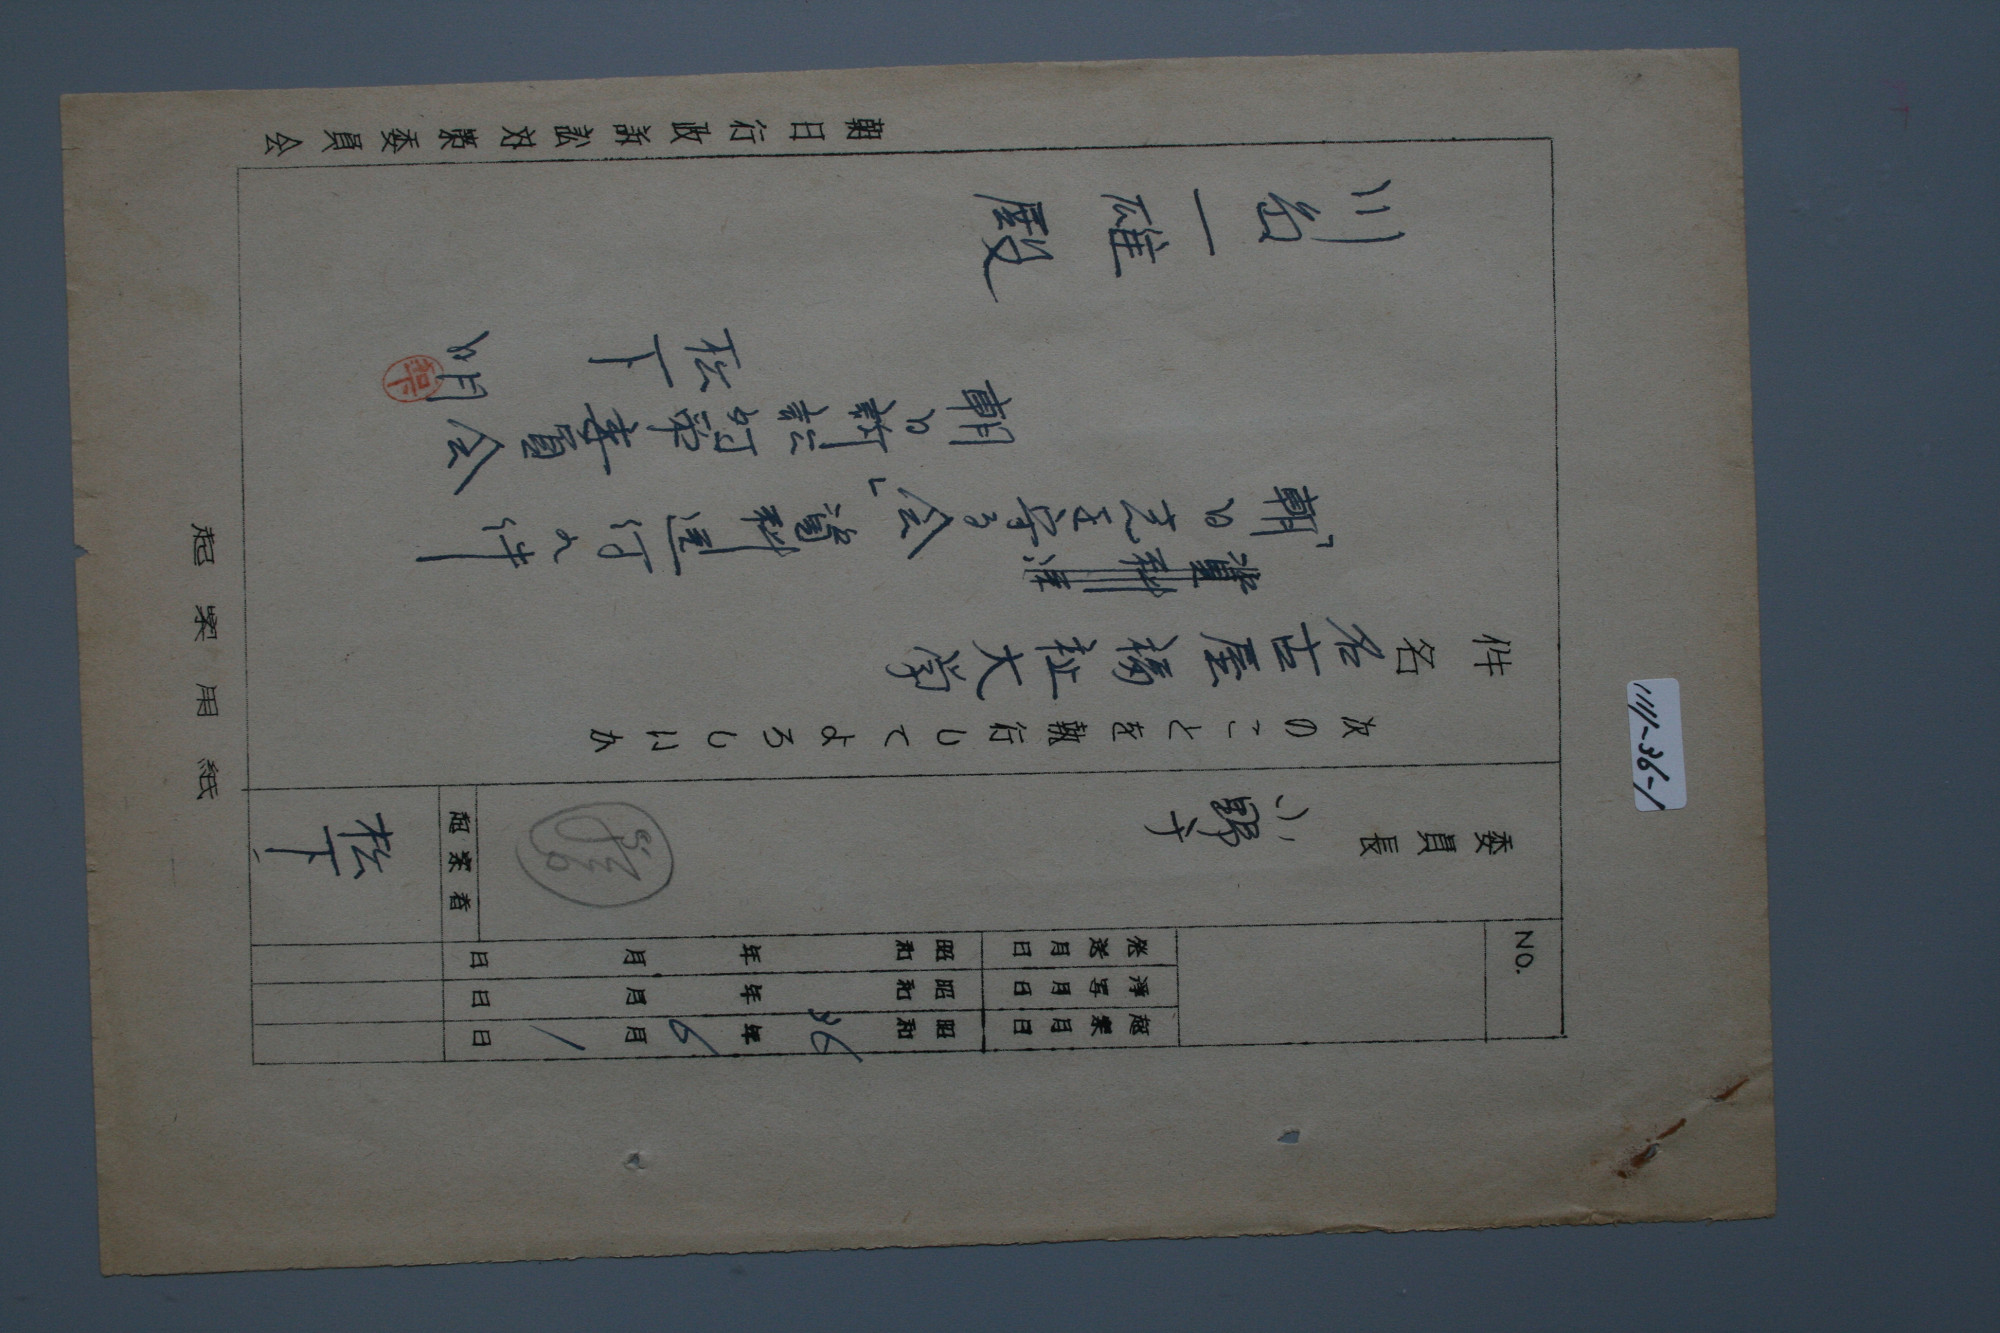 NO.
起案月日 昭和36年6月1日
浄写月日 昭和 年 月 日
発送月日 昭和 年 月 日
委員長
起案者
松下
次のことを執行してよろしいか
件名 名古屋福祉大学
資料送
「朝日茂を守る会」資料送付の件
朝日訴訟対策委員会
松下 明
一雄殿
朝日行政訴訟対策委員会
起案用紙
111-36-1